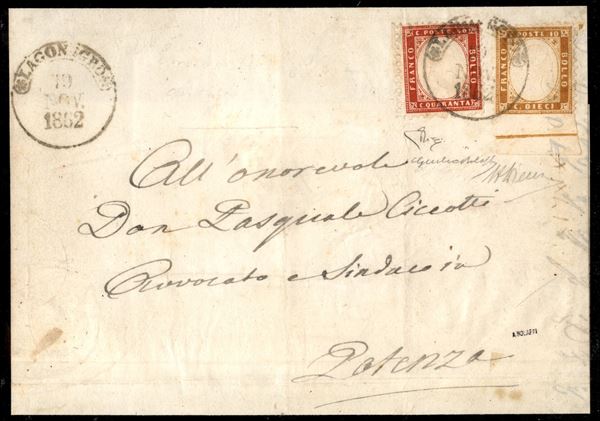 LAGONEGRO
19
NOV.
1862
C. POSTE. 40
FRANCO
BOLLO
C. QUARANTA
C. POSTE. 10
FRANCO
BOLLO
C. DIECI
All'onorevole
Don Pasquale Ciccotti
Avvocato e Sindaco in
Potenza
A. BOLAFFI